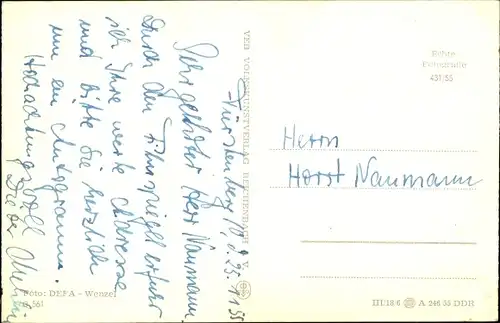 Fürstenberg, d. 25.11.55
Sehr geehrter Herr Naumann!
Durch den Filmspiegel erfuhr
ich Ihre werte Adresse
und bitte Sie herzlich
um ein Autogramm.
Hochachtungsvoll
VEB VOLKSKUNSTVERLAG REICHENBACH
Foto: DEFA - Wenzel
Echte
Fotografie
Herrn
Horst Naumann
III/18/6 A 246 55 DDR